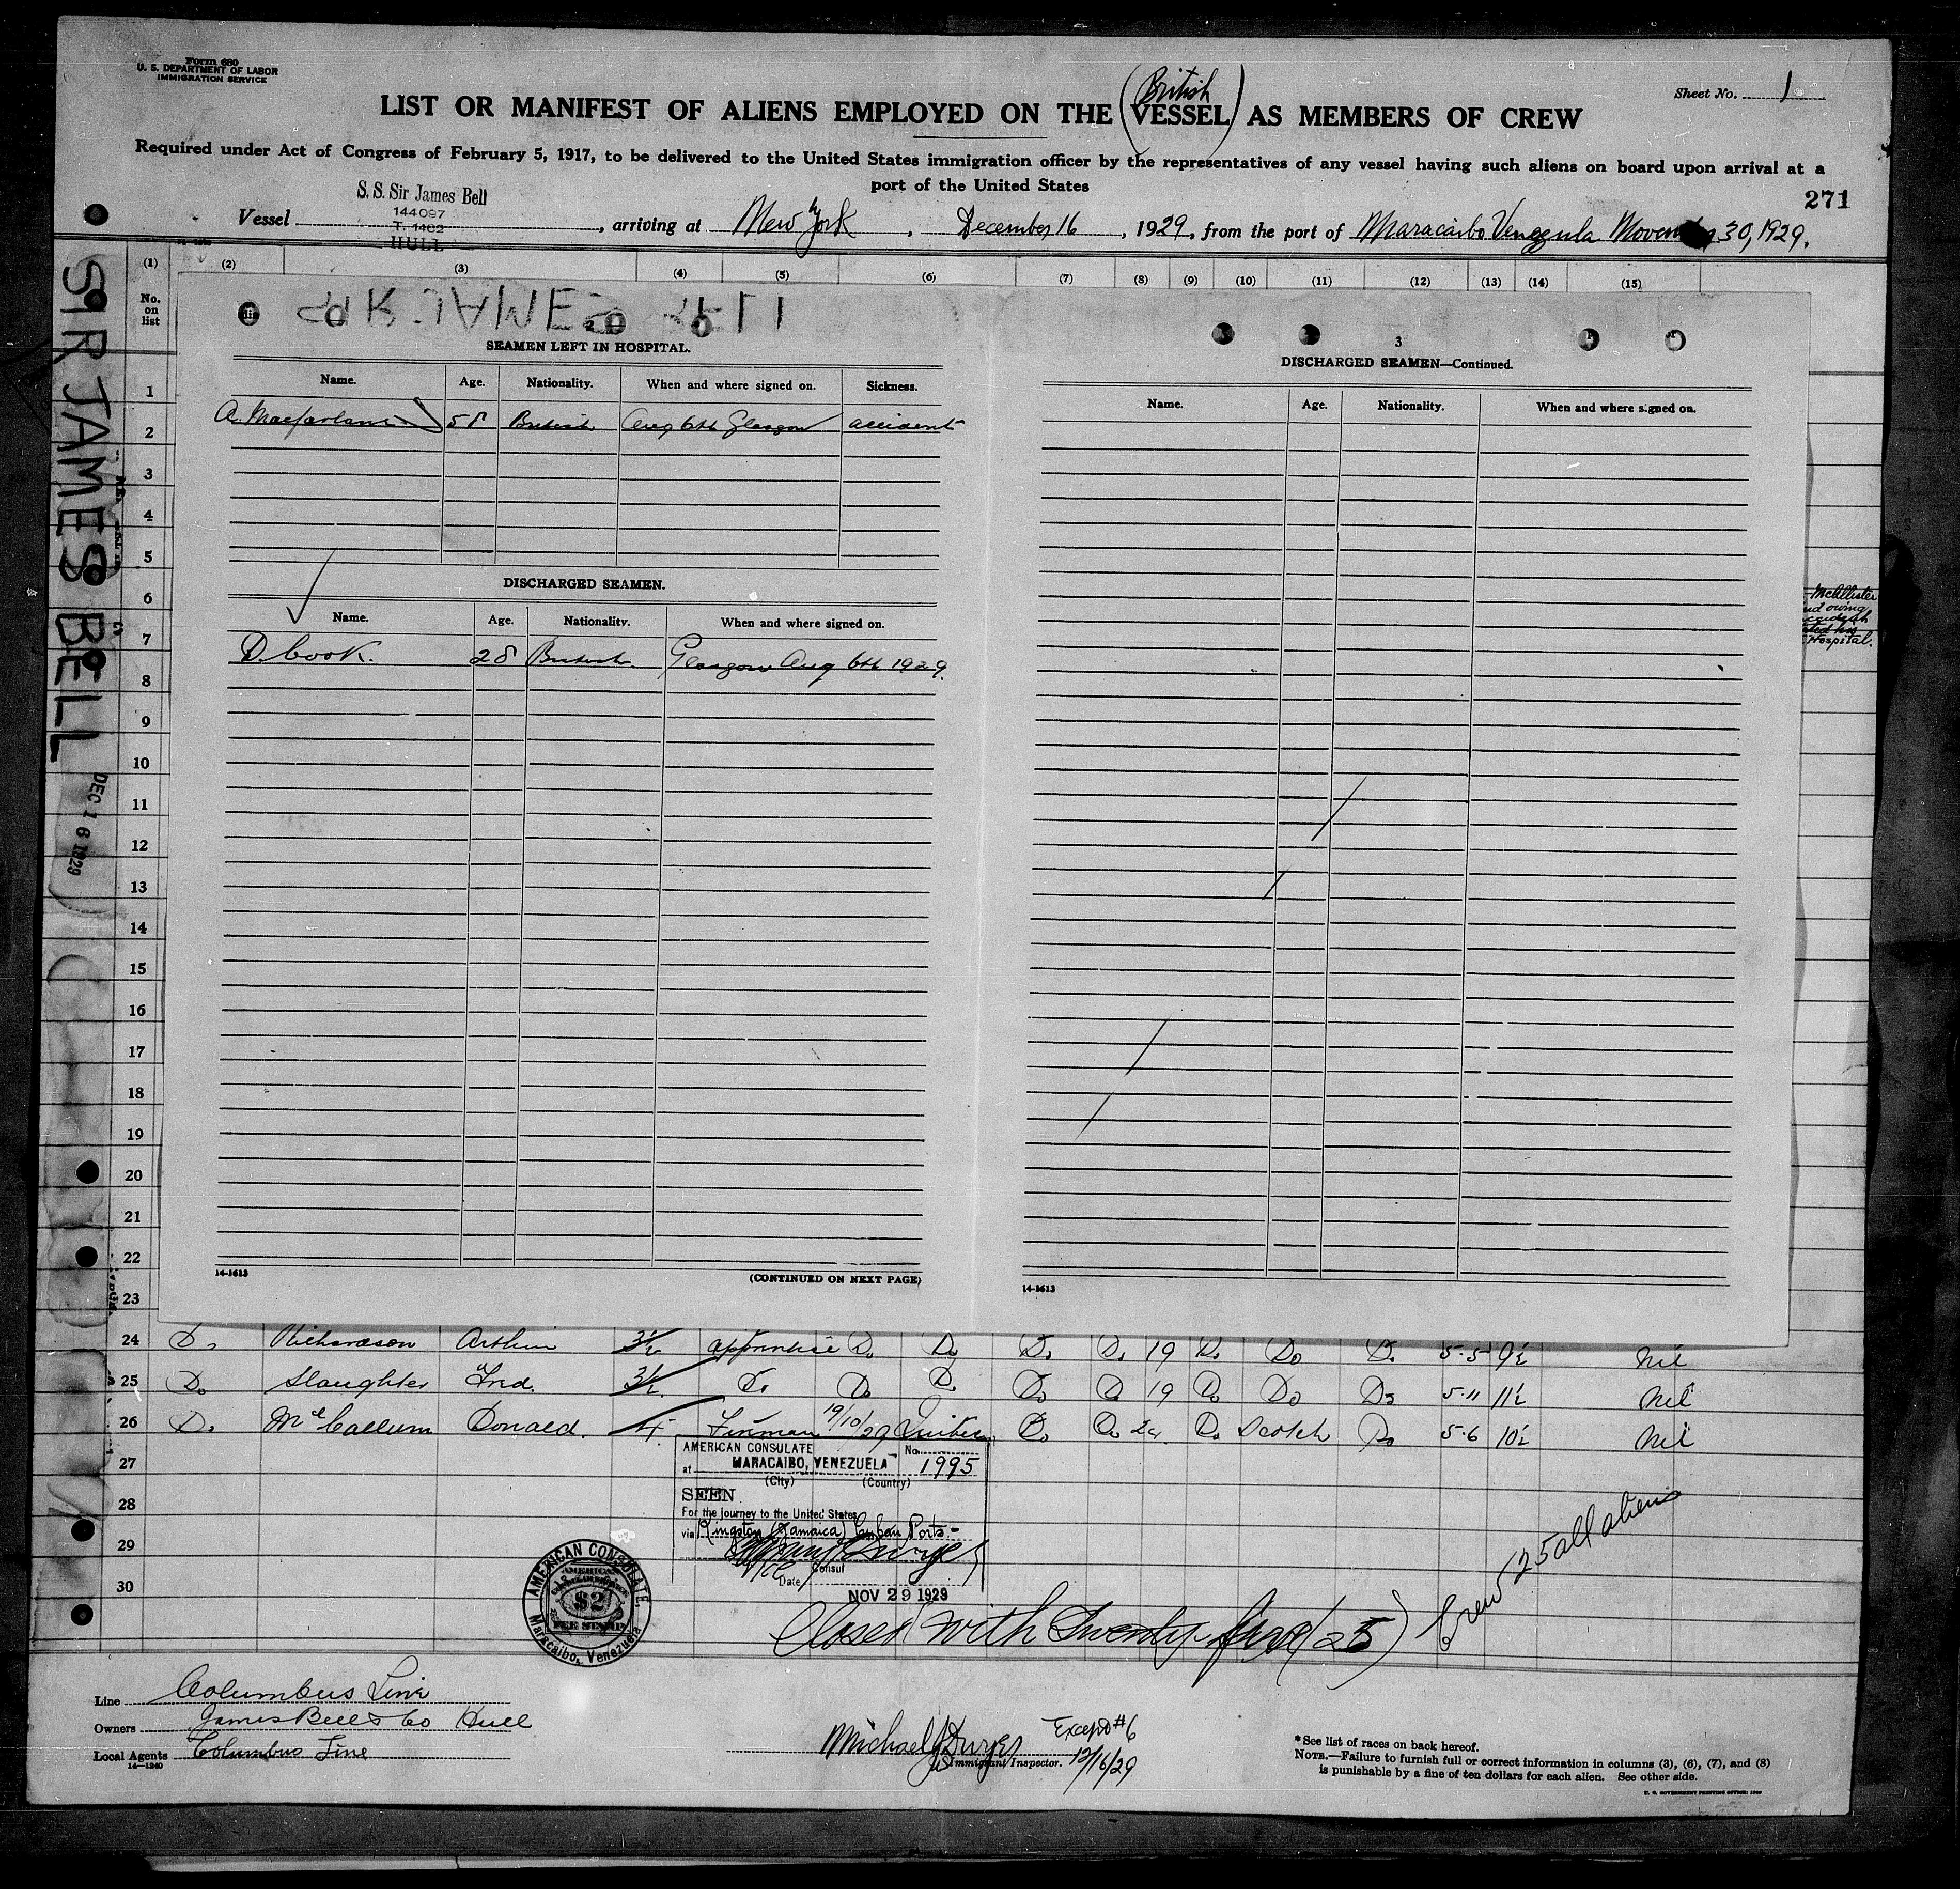 Form 680
U. S. DEPARTMENT OF LABOR
IMMIGRATION SERVICE
Sheet No. 1
(British
LIST OR MANIFEST OF ALIENS EMPLOYED ON THE VESSEL) AS MEMBERS OF CREW
Required under Act of Congress of February 5, 1917, to be delivered to the United States immigration officer by the representatives of any vessel having such aliens on board upon arrival at a
port of the United States
271
S. S. Sir James Bell
144097
T. 1462
HULL
Vessel , arriving at New York , December 16 , 1929, from the port of Maracaibo 30, 1929.
(1) (2) (3) (4) (5) (6) (7) (8) (9) (10) (11) (12) (13) (14) (15)
No. on list
SIR JAMES BELL
DEC 16 1929
SEAMEN LEFT IN HOSPITAL.
Name. Age. Nationality. When and where signed on. Sickness.
A. Macfarlane 58 British Aug 6th Glasgow accident
DISCHARGED SEAMEN.
Name. Age. Nationality. When and where signed on.
D. Cook. 28 British Glasgow Aug 6th 1929.
14-1613
(CONTINUED ON NEXT PAGE)
3
DISCHARGED SEAMEN—Continued.
Name. Age. Nationality. When and where signed on.
14-1613
McAllister
owing
Hospital.
1
2
3
4
5
6
7
8
9
10
11
12
13
14
15
16
17
18
19
20
21
22
23
24 Do Richardson Arthur 3½ apprentice Do Do Do Do 19 Do Do Do 5-5 9½ Nil
25 Do Slaughter Fred. 3½ Do Do Do Do Do 19 Do Do Do 5-11 11½ Nil
26 Do McCallum Donald. 4 Fireman 19/10/29 Do Do Do Scotch Do 5-6 10½ Nil
27
28
29
30
AMERICAN CONSULATE
No. 1995
at MARACAIBO, VENEZUELA
(City) (Country)
SEEN
For the journey to the United States
via Kingston (Jamaica) Cuban Ports.-
Vice Consul
Date
NOV 29 1929
AMERICAN CONSULATE,
AMERICAN
$2
FEE STAMP
Maracaibo, Venezuela
Closed with twenty-five (25)
Crew 25 all aliens
Line Columbus Line
Owners James Bell & Co Hull
Local Agents Columbus Line
14—1240
Michael J Dwyer Except #6
US Immigrant Inspector. 12/16/29
* See list of races on back hereof.
NOTE.—Failure to furnish full or correct information in columns (3), (6), (7), and (8)
is punishable by a fine of ten dollars for each alien. See other side.